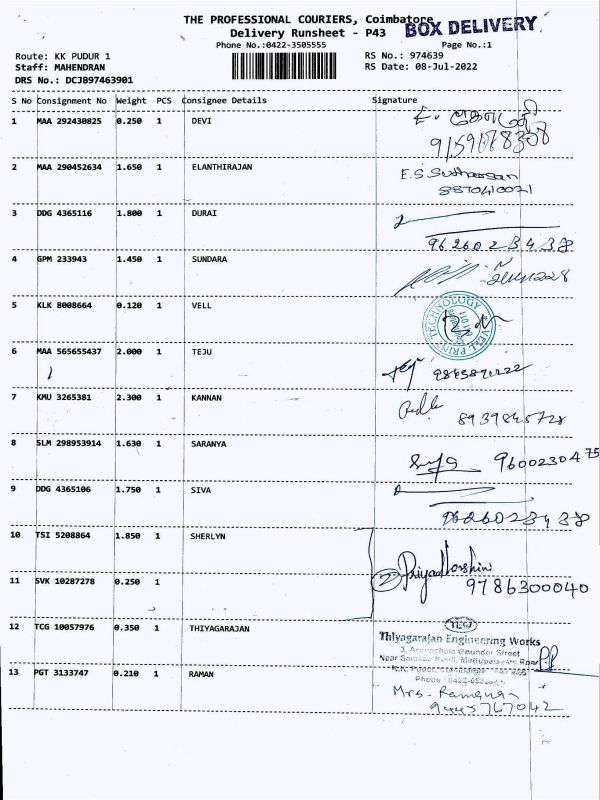 THE PROFESSIONAL COURIERS, Coimbatore
BOX DELIVERY
Delivery Runsheet - P43
Phone No.:0422-3505555
Page No.:1
Route: KK PUDUR 1
RS No.: 974639
Staff: MAHENDRAN
RS Date: 08-Jul-2022
DRS No.: DCJB97463901
S No Consignment No Weight PCS Consignee Details Signature
1 MAA 292430825 0.250 1 DEVI
2 MAA 290452634 1.650 1 ELANTHIRAJAN E.S
8870410071
3 DDG 4365116 1.800 1 DURAI
9626023438
4 GPM 233943 1.450 1 SUNDARA
5 KLK 8008664 0.120 1 VELL
VELL PRINT TECHNOLOGY
6 MAA 565655437 2.000 1 TEJU
7 KMU 3265381 2.300 1 KANNAN
8939845728
8 SLM 298953914 1.630 1 SARANYA
9600230475
9 DDG 4365106 1.750 1 SIVA
9626023438
10 TSI 5208864 1.850 1 SHERLYN
2 Priyadharshini
11 SVK 10287278 0.250 1
9786300040
TEW
12 TCG 10057976 0.350 1 THIYAGARAJAN
Thiyagarajan Engineering Works
3, Gounder Street
Near Road
13 PGT 3133747 0.210 1 RAMAN
Phone
Mrs. Ramanan
9445767042